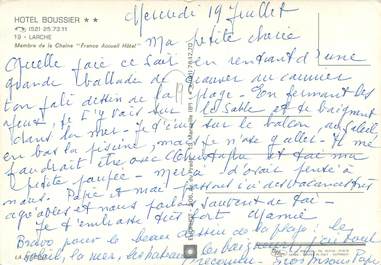 HOTEL BOUSSIER ★★
(52) 25.73.11
19 - LARCHE
Membre de la Chaîne "France Accueil Hôtel"
Mercredi 19 Juillet
Ma petite chérie
Quelle joie ce soir en rentrant d'une
grande ballade de trouver au courrier
ton joli dessin de la plage. En fermant les
yeux, je t'y vais sur le sable et se baignant
dans la mer. Je t'écris sur le balcon, au soleil,
en bas la piscine, mais je n'ose y aller. Il me
faudrait être avec Christophe et toi ma
petite poupée. Merci d'avoir pensé à
nous. Papie et moi passons ici des vacances très
agréables et nous parlons souvent de toi.
Je t'embrasse très fort Mamie
Bravo, pour le beau dessin de la plage : le
soleil, la mer, les bateaux, les baigneurs, j'ai tout
reconnu. Gros bisous Papie